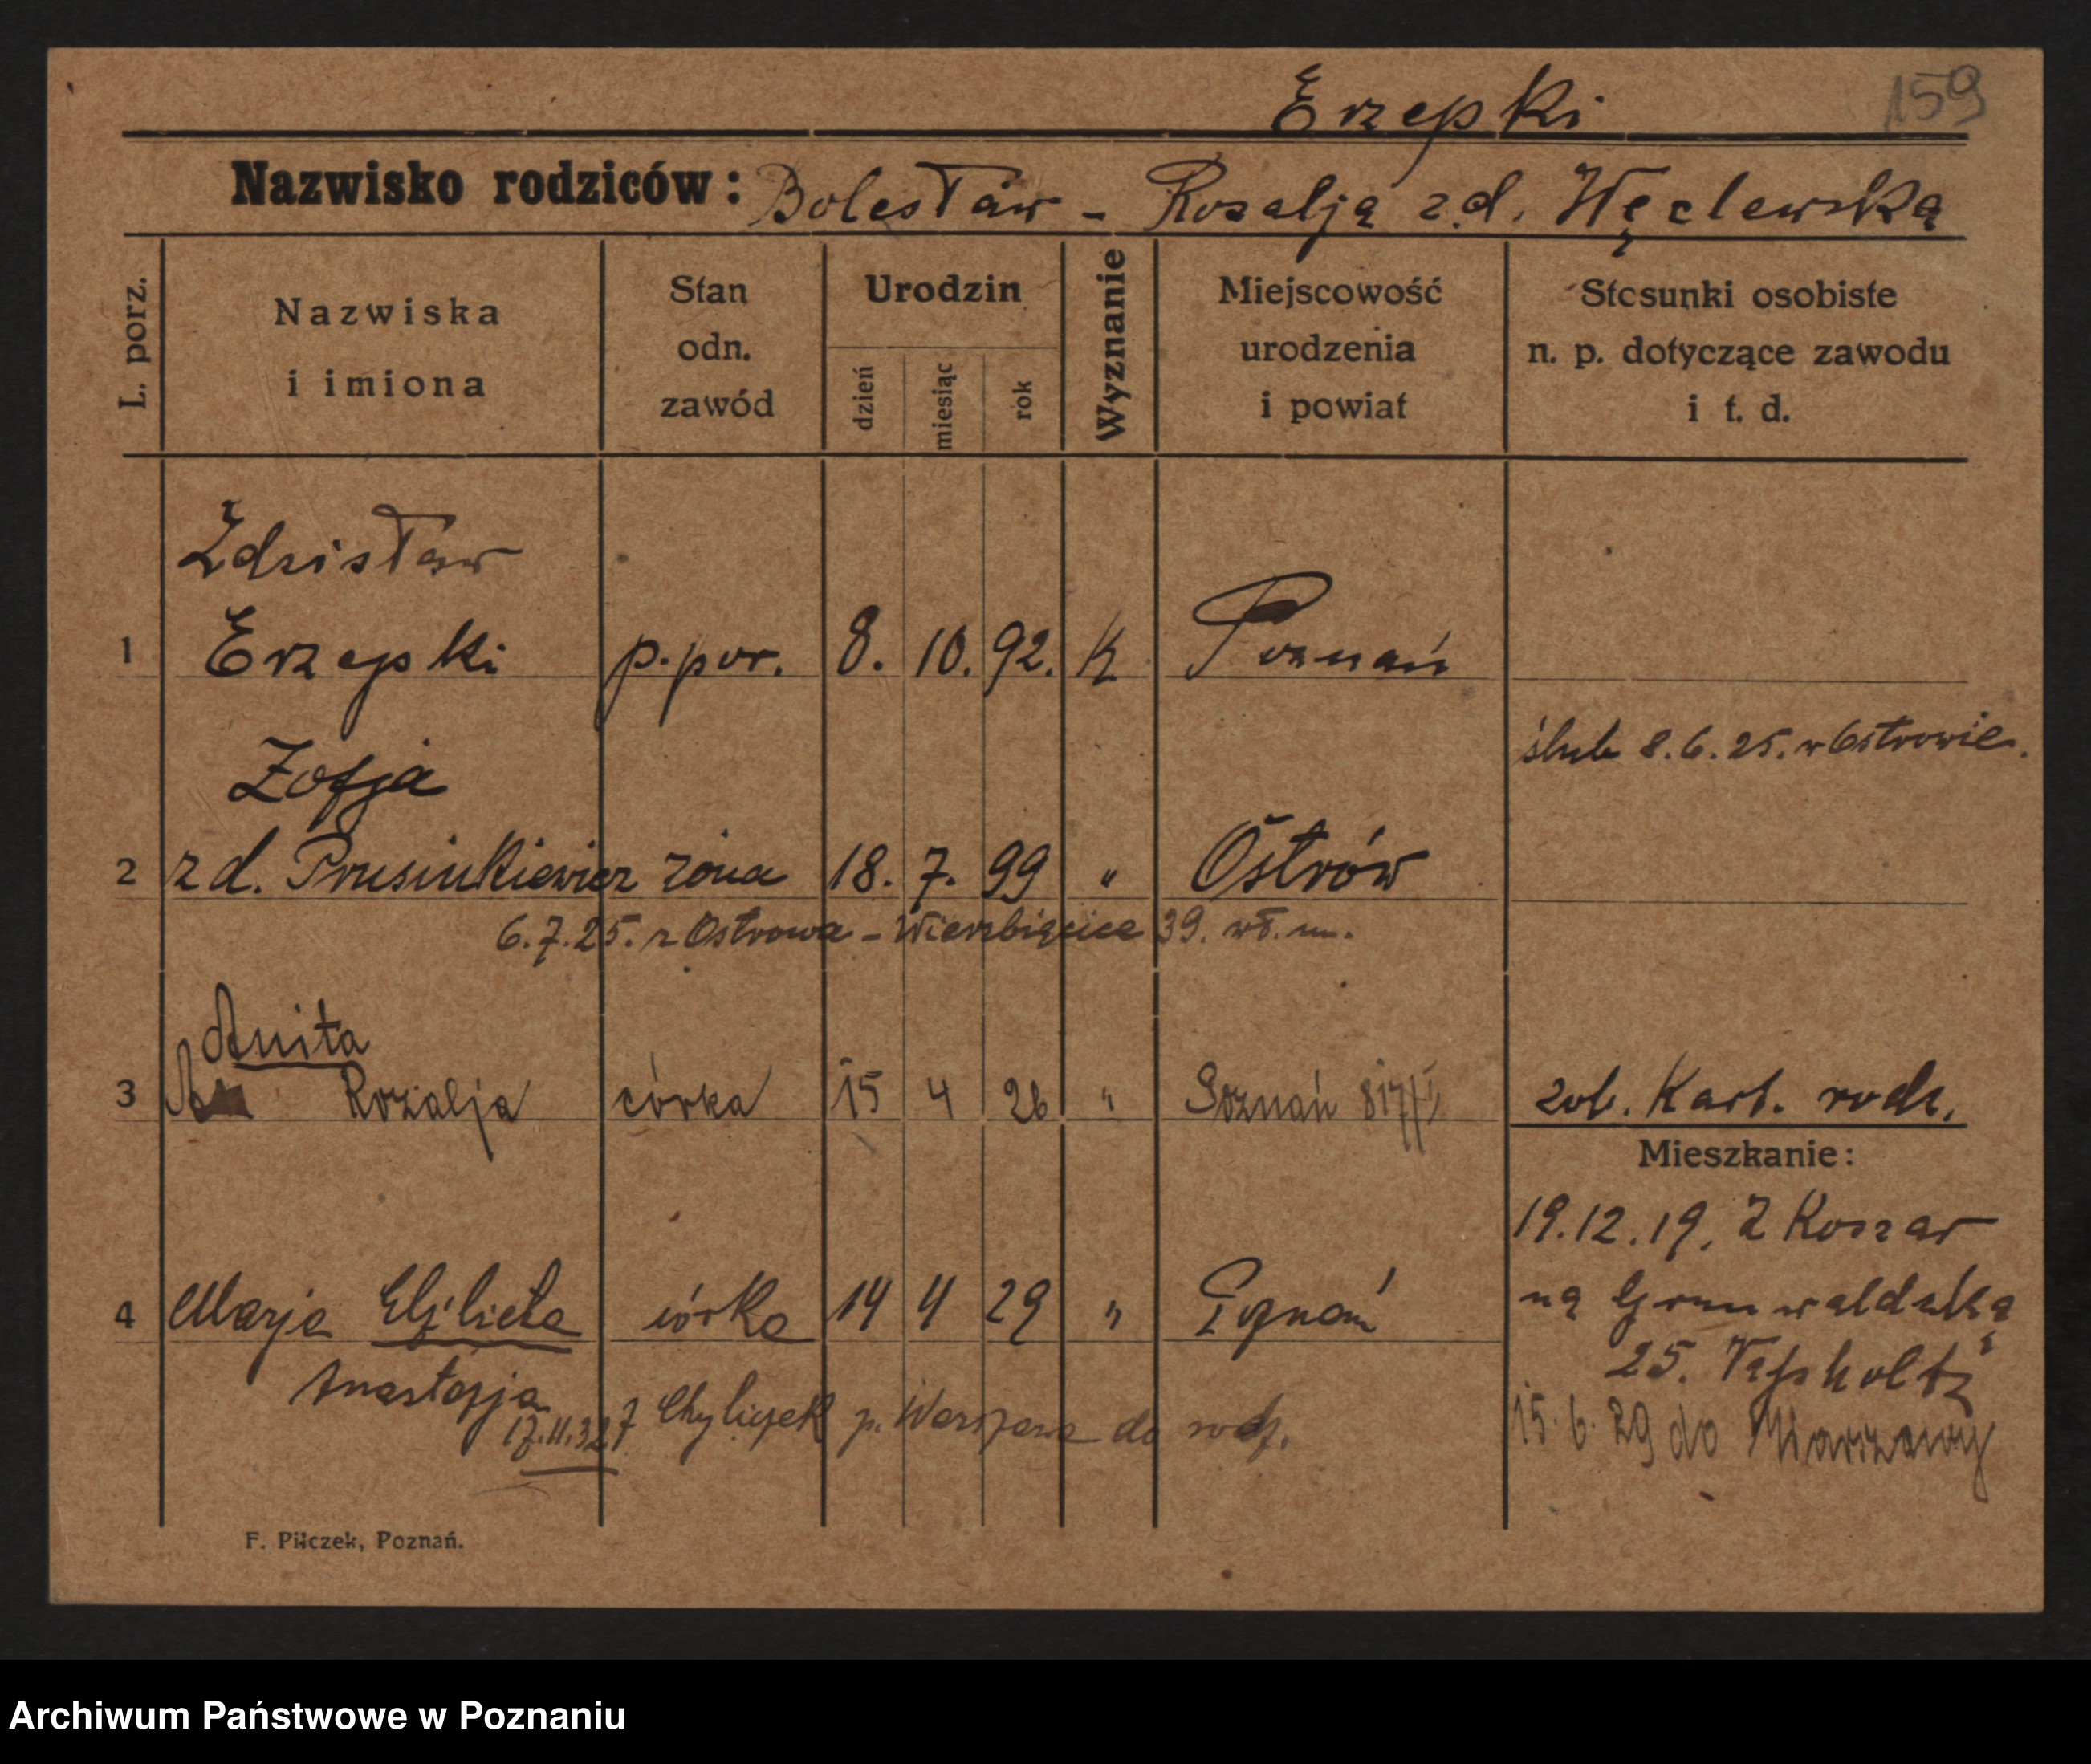 Erzepki 159
Nazwisko rodziców: Bolesław - Rozalją z d. Węclewską
L. porz.
Nazwiska
i imiona
Stan
odn.
zawód
Urodzin
dzień
miesiąc
rok
Wyznanie
Miejscowość
urodzenia
i powiat
Stosunki osobiste
n. p. dotyczące zawodu
i t. d.
Zdzisław
1 Erzepki p.por. 8. 10. 92. K Poznań
ślub 8.6.25. w Ostrowie.
Zofja
2 z d. Prusinkiewicz żona 18. 7. 99 " Ostrów
6.7.25. z Ostrowa - Wierzbięcice 39. wł. m.
Anita
3 Rozalja córka 15 4 26 " Poznań 817/I zob. Kart. rodz.
Mieszkanie:
19.12.19. Z Koszar
na Grunwaldzką
4 Marja Elżbieta córka 14 4 29 " Poznań
25.
Anastazja
17.11.32 z Chyliczek p. Warszawa do rodz.
15.6.29 do Warszawy
F. Pilczek, Poznań.
Archiwum Państwowe w Poznaniu